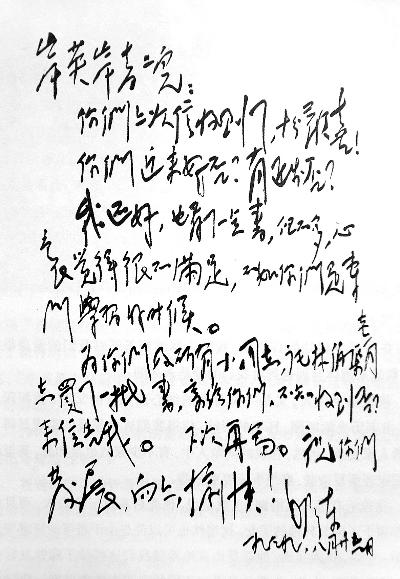 岸英岸青二兒：
你們上次信收到了，十分歡喜！
你們近來好否？有進步否？
我還好，也看了一點書，但不多，心
里覺得很不滿足，不如你們是專
門學習的時候。
為你們及所有小同志，託林伯渠老同
志買了一批書，寄給你們，不知收到否？
來信告我。下次再寫。祝你們
發展，向上，愉快！毛澤東
一九三九，八月廿六日